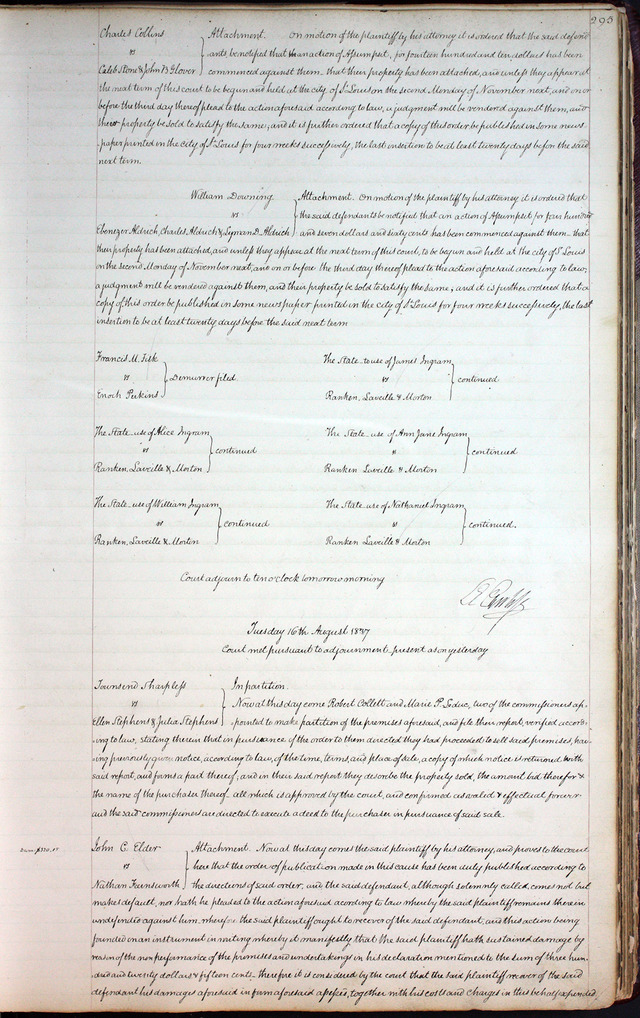 293
Charles Collins
vs
Caleb Stone & John B Glover
Attachment. On motion of the plaintiff by his attorney it is ordered that the said defend
ants, be notified that an action of Assumpsit, for fourteen hundred and ten dollars has been
commenced against them. that their property has been attached, and unless they appear at
the next term of this court to be begun and held at the city of St Louis on the second Monday of November next, and on or
before the third day thereof plead to the action aforesaid according to law, a judgment will be rendered against them, and
their property be sold to satisfy the same, and it is further ordered that a copy of this order be published in some news
paper printed in the city of St Louis for four weeks successively, the last insertion to be at least twenty days before the said
next term.
William Downing
vs
Ebenezer Aldrich, Charles Aldrich & Lyman D. Aldrich
Attachment. On motion of the plaintiff by his attorney it is ordered that
the said defendants be notified that an action of Assumpsit for four hundred
and seven dollars and sixty cents has been commenced against them. that
their property has been attached, and unless they appear at the next term of this court, to be begun and held at the city of St Louis
on the second Monday of November next, and on or before the third day thereof plead to the action aforesaid according to law,
a judgment will be rendered against them, and their property be sold to satisfy the same; and it is further ordered that a
copy of this order be published in some newspaper printed in the city of St Louis for four weeks successively, the last
insertion to be at least twenty days before the said next term
Francis M. Fisk
vs
Enoch Perkins
Demurrer filed
The State to use of James Ingram
vs
Ranken, Laveille & Morton
continued
The State use of Alice Ingram
vs
Ranken, Laveille & Morton
continued
The State use of Ann Jane Ingram
vs
Ranken Laveille & Morton
continued
The State use of William Ingram
vs
Ranken, Laveille & Morton
continued
The State use of Nathaniel Ingram
vs
Ranken Laveille & Morton
continued.
Court adjourn to ten o'clock tomorrow morning
Tuesday 16th August 1837
Court met pursuant to adjournment present as on yesterday
Townsend Sharpless
vs
Ellen Stephens & Julia Stephens
In partition.
Now at this day come Robert Collett and Marie P. Leduc, two of the commissioners ap-
pointed to make partition of the premises aforesaid, and file their report, verified accord-
ing to law, stating therein that in pursuance of the order to them directed they had proceeded to sell said premises, hav-
ing previously given notice, according to law, of the time, terms, and place of sale, a copy of which notice is returned with
said report, and forms a part thereof, and in their said report they describe the property sold, the amount bid therefor &
the name of the purchaser thereof. all which is approved by the court, and confirmed as valid & effectual forever
and the said commissioners are directed to execute a deed to the purchaser in pursuance of said sale.
John C. Elder
vs
Nathan Farnsworth
Attachment. Now at this day comes the said plaintiff by his attorney, and proves to the court
here that the order of publication made in this cause has been duly published according to
the directions of said order, and the said defendant, although solemnly called, comes not but
makes default, nor hath he pleaded to the action aforesaid according to law whereby the said plaintiff remains therein
undefended against him. wherefore the said plaintiff ought to recover of the said defendant; and this action being
founded on an instrument in writing whereby it manifestly that the said plaintiff hath sustained damage by
reason of the non performance of the promises and undertakings in his declaration mentioned to the sum of three hun
dred and twenty dollars & fifteen cents. therefore it is considered by the court that the said plaintiff recover of the said
defendant his damages aforesaid in form aforesaid assessed, together with his costs and charges in this behalf expended